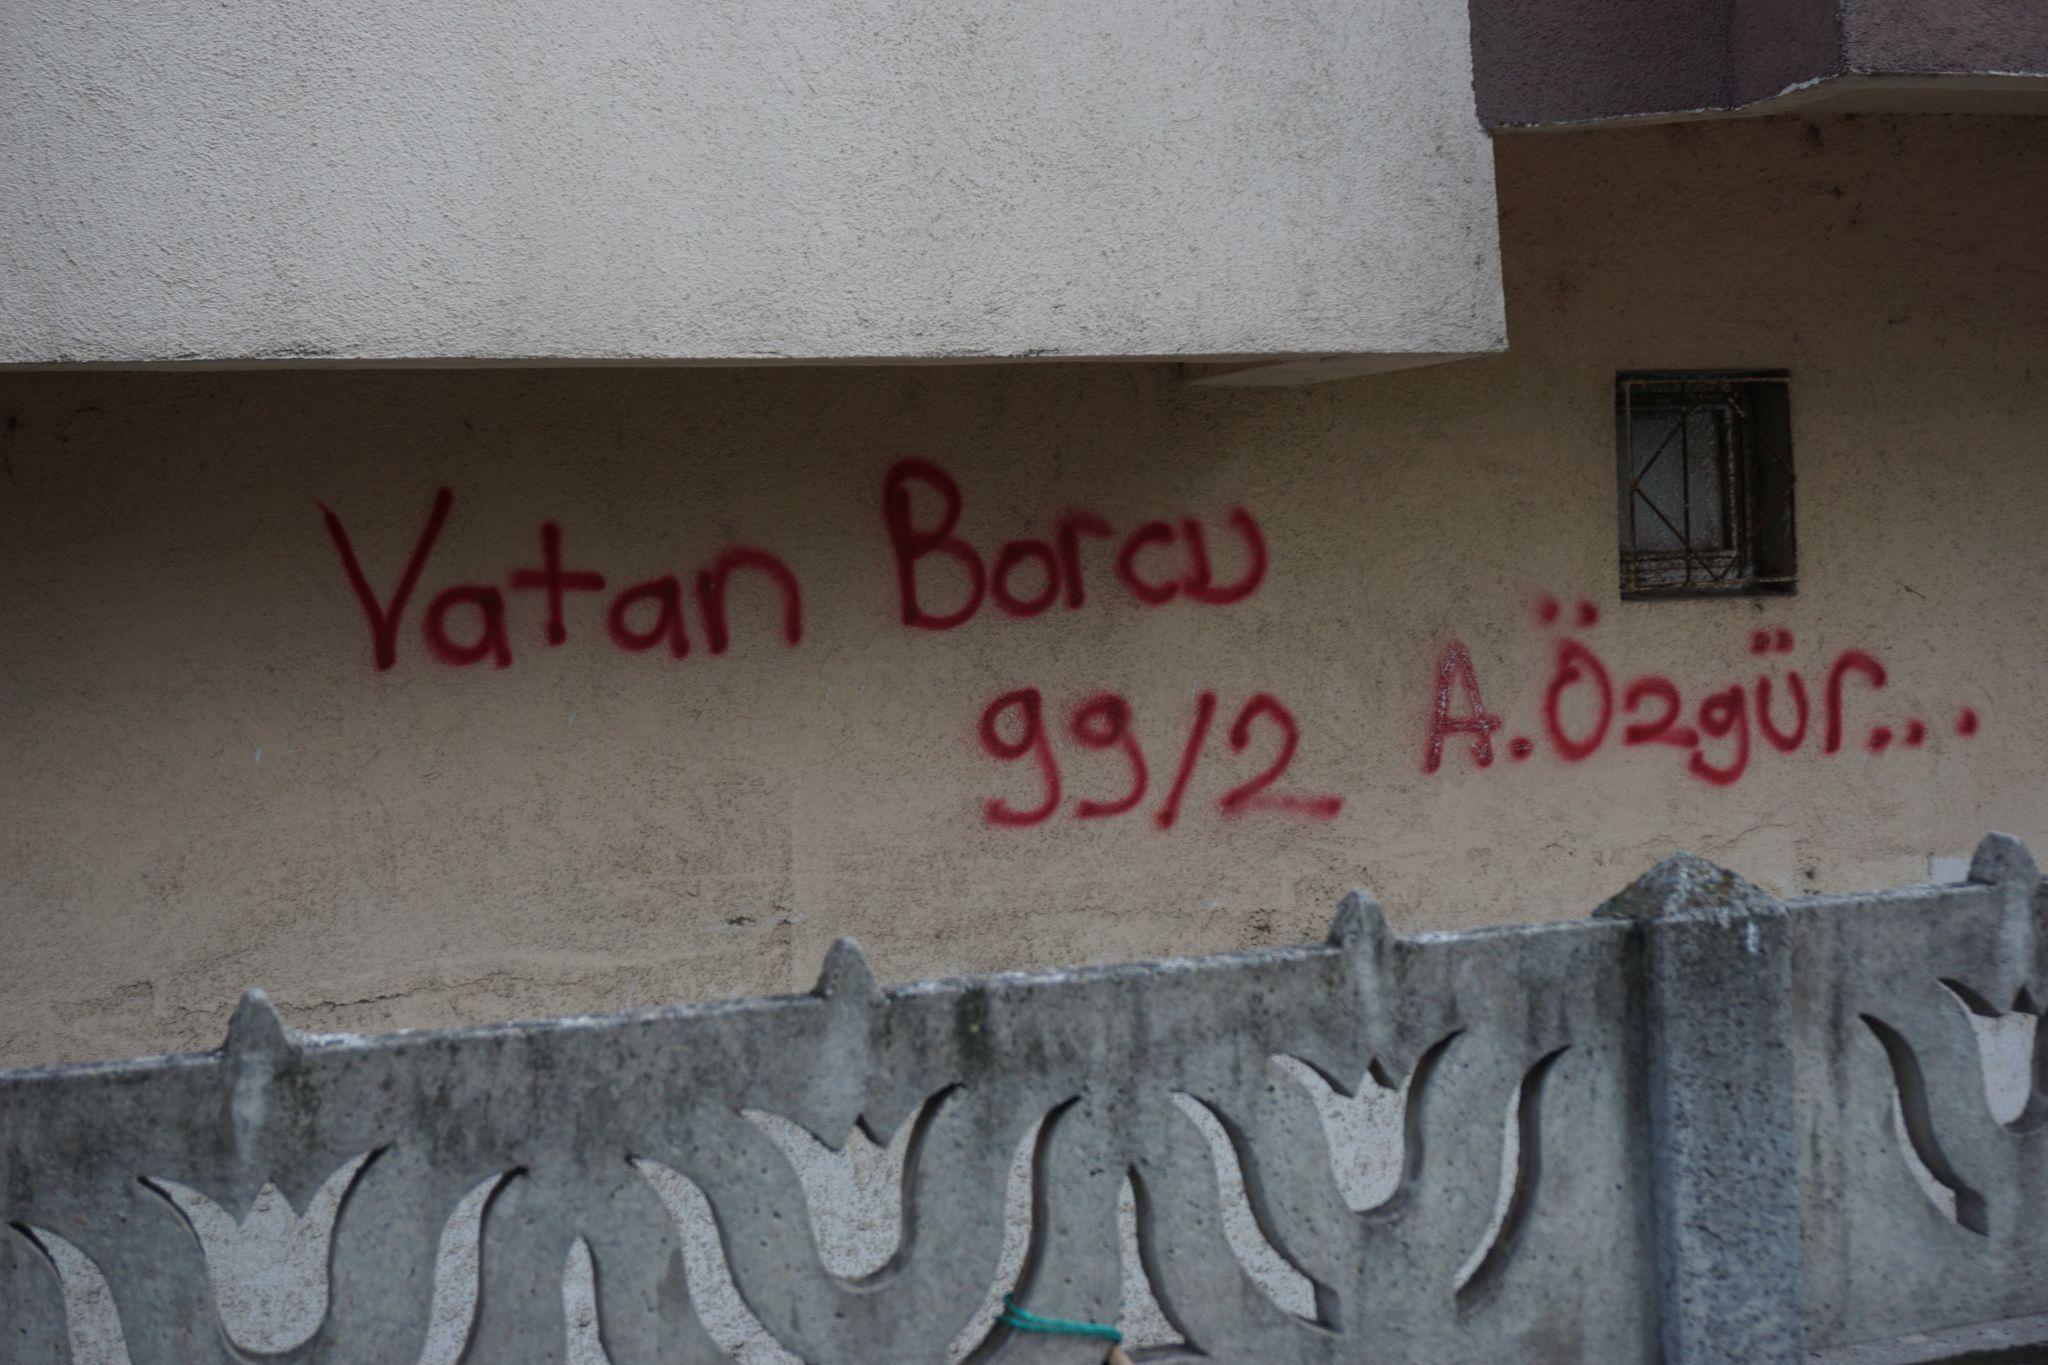 Vatan Borcu
99/2 A.Özgür...